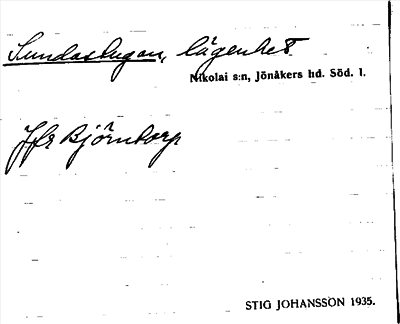 Sundastugan, lägenhet
Nikolai s:n, Jönåkers hd. Söd. l.
Jfr Björntorp
STIG JOHANSSON 1935.